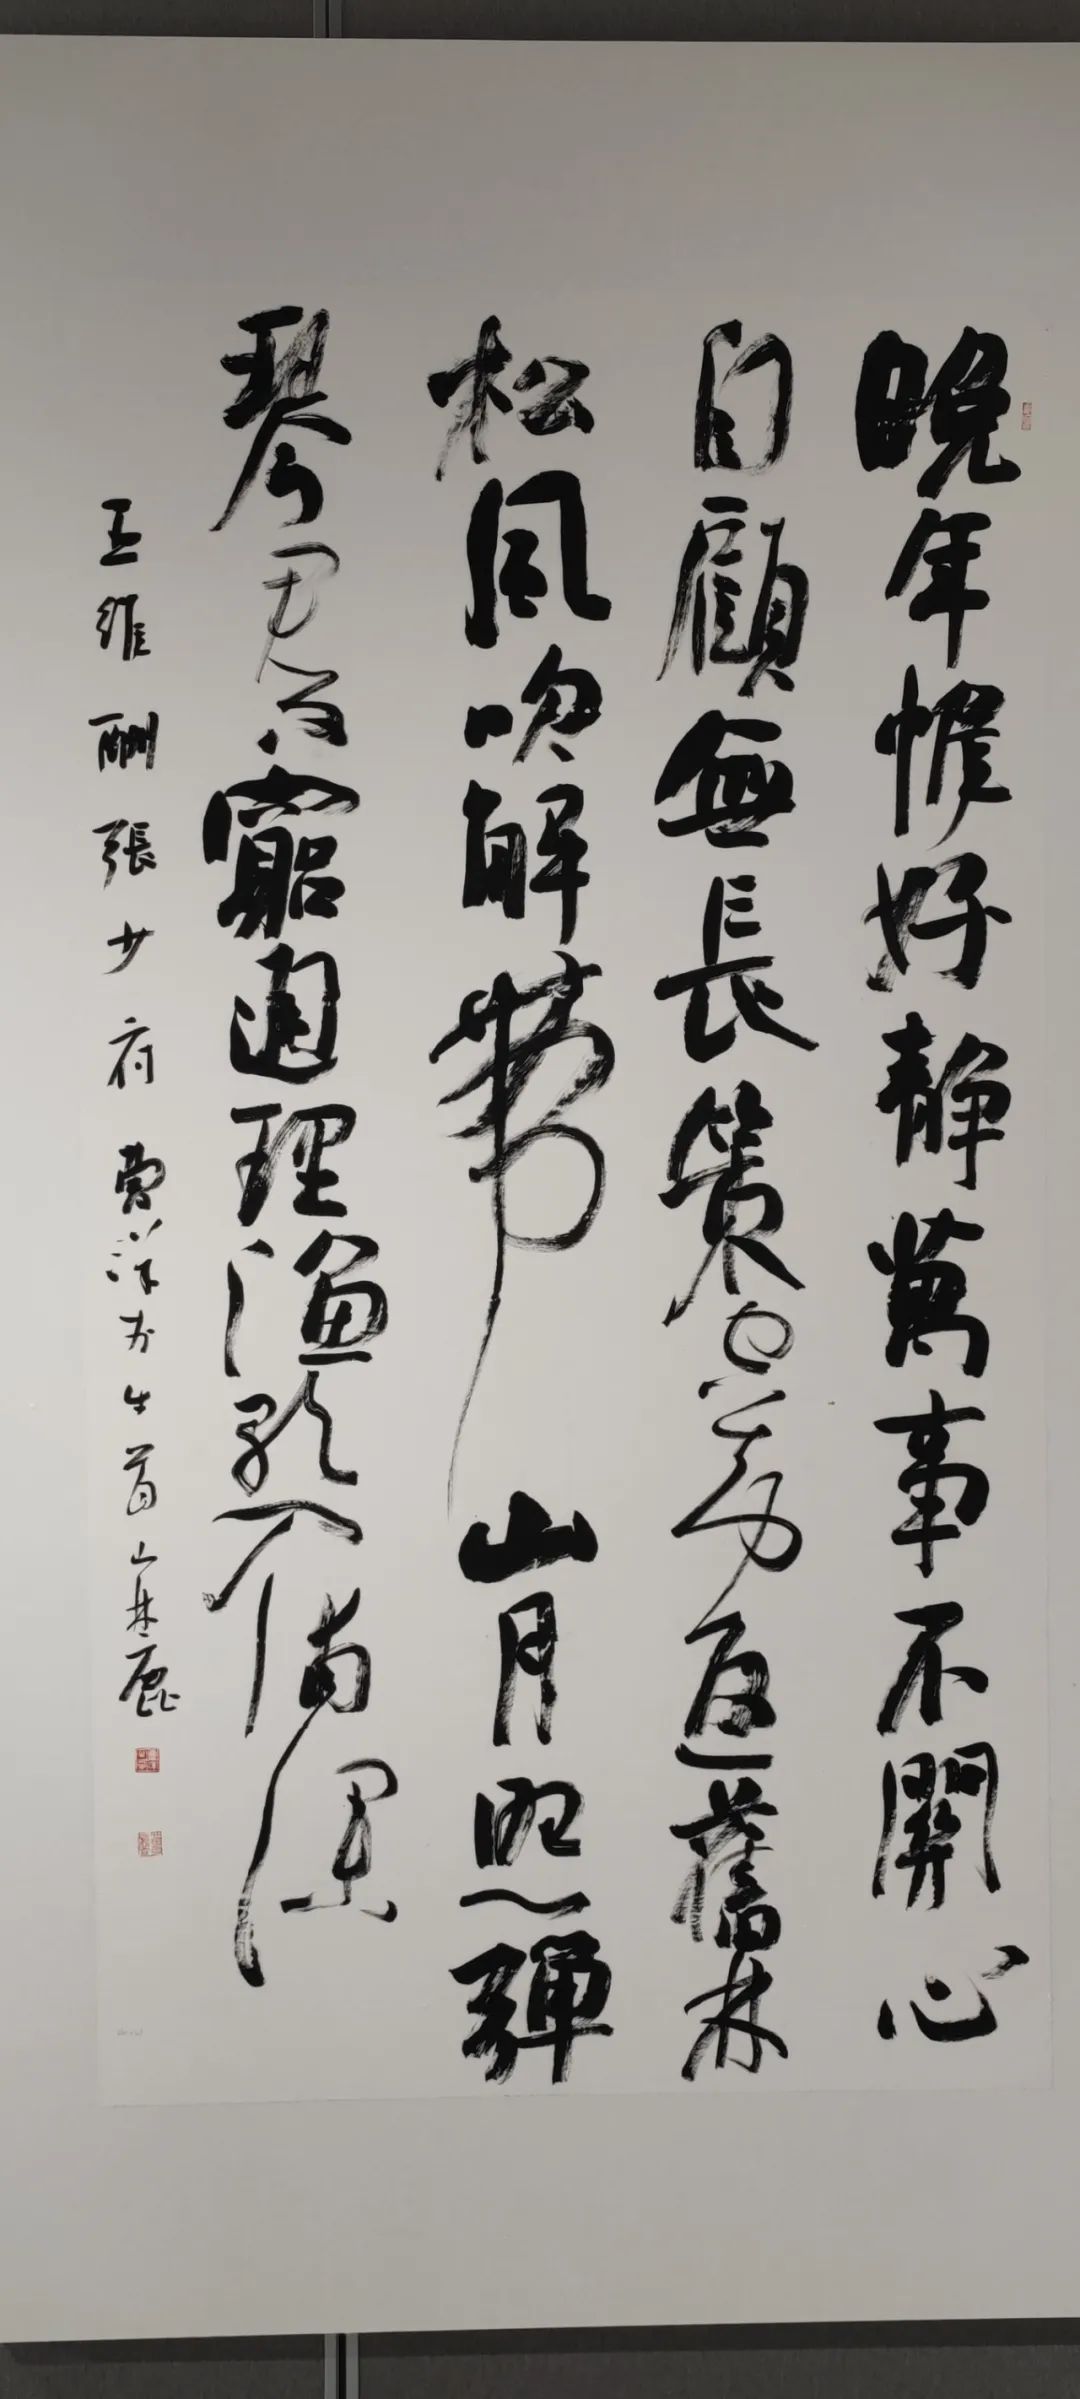 晚年惟好靜萬事不開心
自顧無長策空知返舊林
松風吹解帶山月照彈
琴君問窮通理漁歌入浦深
王維酬張少府 洋於牛首山麓